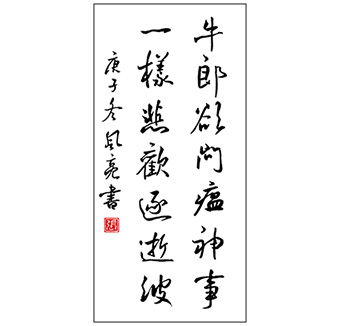 牛郎欲问瘟神事
一樣悲歡逐逝波
庚子冬風亮書